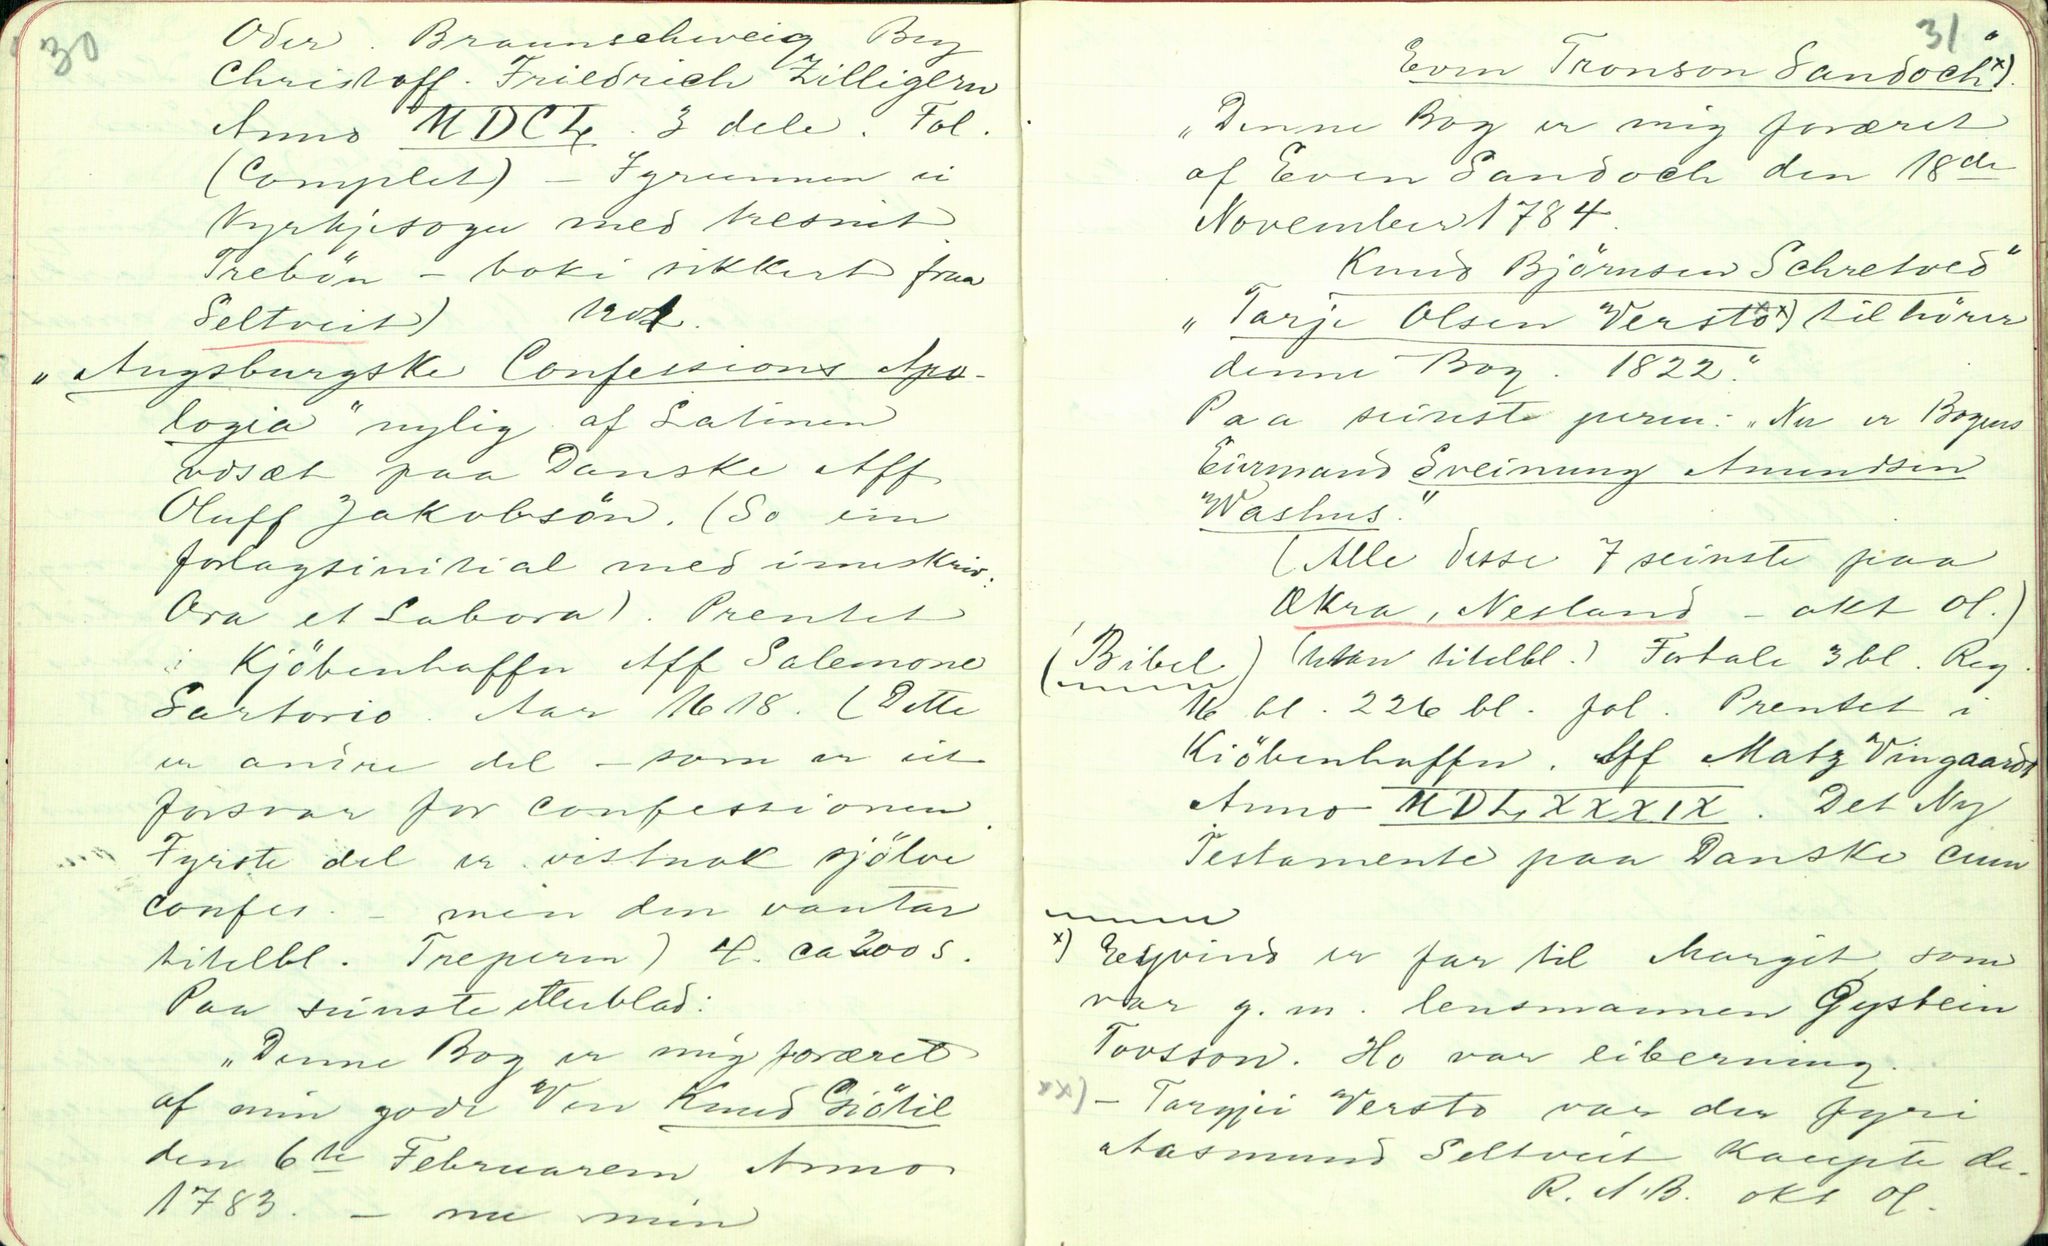 30
Oder. Braunschweig Bey
Christoff. Friedrich Zilligern
Anno MDCL. 3 dele. Fol.
(Complet) - Fyrennen ei
Kyrkjesoge med tresnit
Trebön - boki sikkert fraa
Seltveit)
"Augsburgske Confessions Apo-
logia" nylig af Latinen
vdsæt paa Danske Aff
Oluff Jakobsön. (So ein
forlagsinitial med innskriv:
Ora et Labora). Prentet
i Kjöbenhaffn Aff Salemone
Sartorio. Aar 1618. (Dette
er andre del - som er eit
forsvar for confessionen.
Fyrste del er vistnok sjölve
confes. - men den vantar
titelbl. Treperm) 4. ca 200 s.
Paa seinste etterblad:
"Denne Bog er mig foræret
af min gode Ven Knud Giötil
den 6te Februarem Anno
1783. - nu min
31
Even Tronson Sandoch x)."
"Denne Bog er mig foræret
af Even Sandoch den 18de
November 1784.
Knud Björnsen Schretved"
"Tarje Olsen Versto xx) tilhörer
denne Bog. 1822."
Paa seinste perm: "Nu er Bogens
Eiermand Sveinung Amundsen
Washus."
(Alle desse 7 seinste paa
Økra, Nesland - okt 01.)
(Bibel) (utan titelbl.) Fortale 3 bl. Reg.
16 bl. 226 bl. fol. Prentet i
Kiöbenhaffn. Aff Matz Vingaardt
Anno MDLXXXIX. Det Ny
Testamente paa Danske cum
x) Eyvind er far til Margit som
var g. m. lensmannen Gystein
Tovsson. Ho var eiberning.
xx) - Targjei Versto var der fyri
Aasmund Seltveit kaupte de.
R. A. B. okt 01.